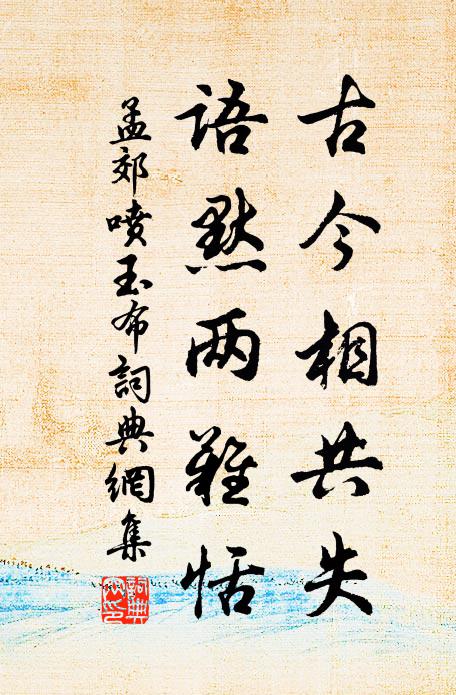 古今相共失
语默两难恬
孟郊喷玉布詞典網集
詞典